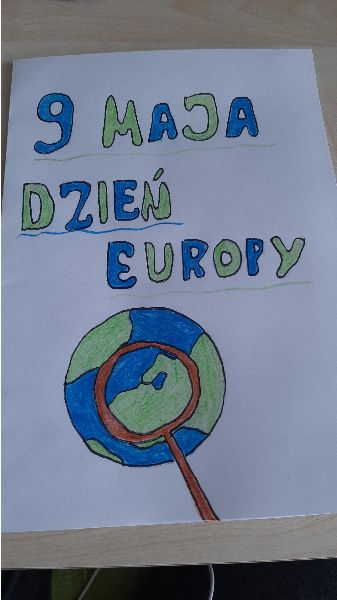 9 MAJA
DZIEŃ
EUROPY